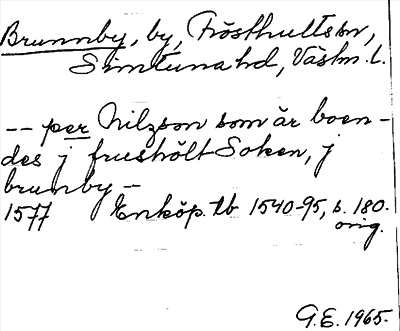 Brunnby, by, Frösthults sn,
Simtuna hd, Västm. l.
-- per Nilzson som är boen-
des j frushölt Soken, j
brunby -
1577 Enköp. tb 1540-95, s. 180.
orig.
G.E. 1965.